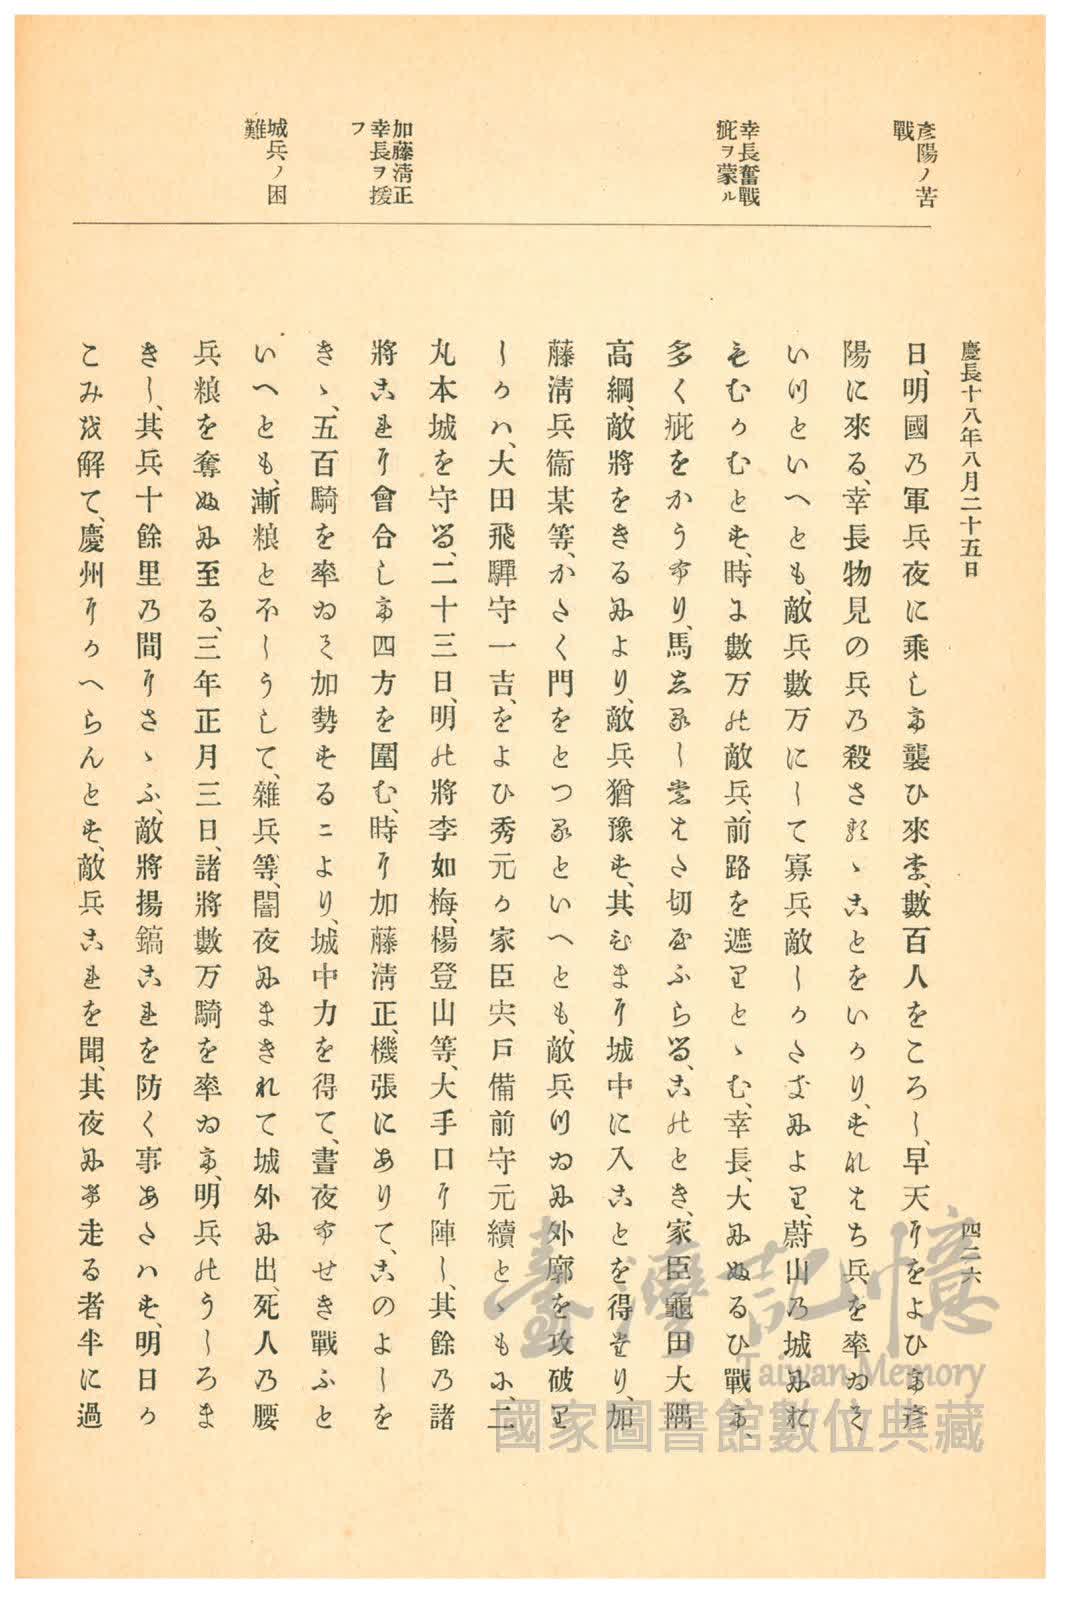 彥陽ノ苦
戰
幸長奮戰
疵ヲ蒙ル
加藤淸正
幸長ヲ援
フ
城兵ノ困
難
慶長十八年八月二十五日
四二六
日、明國乃軍兵夜に乘して襲ひ來り、數百人をころし、早天におよひて彥
陽に來る、幸長物見の兵乃殺さるゝことをいかり、すなはち兵を率ゐて
いつといへとも、敵兵數万にして寡兵敵しかたきによリ、蔚山乃城にお
もむかむとす、時に數万の敵兵、前路を遮りとゝむ、幸長、大にふるひ戰て、
多く疵をかうふり、馬しるしもはた切やふらる、このとき、家臣龜田大隅
高綱、敵將をきるにより、敵兵猶豫す、其ひまに城中に入ことを得たり、加
藤淸兵衞某等、かたく門をとつるといへとも、敵兵つゐに外廓を攻破り
しかハ、大田飛驒守一吉、をよひ秀元か家臣宍戶備前守元續とゝもに、二
丸本城を守る、二十三日、明の將李如梅、楊登山等、大手口に陣し、其餘乃諸
將これに會合して四方を圍む、時に加藤淸正、機張にありて、このよしを
きゝ、五百騎を率ゐて加勢するニより、城中力を得て、晝夜ふせき戰ふと
いへとも、漸粮とほしうして、雜兵等、闇夜にまきれて城外に出、死人乃腰
兵粮を奪ふに至る、三年正月三日、諸將數万騎を率ゐて、明兵のうしろま
きし、其兵十餘里乃間にさゝふ、敵將揚鎬これを防く事あたハす、明日か
こみを解て、慶州にかへらんとす、敵兵これを聞、其夜にけ走る者半に過
臺灣記憶
Taiwan Memory
國家圖書館數位典藏